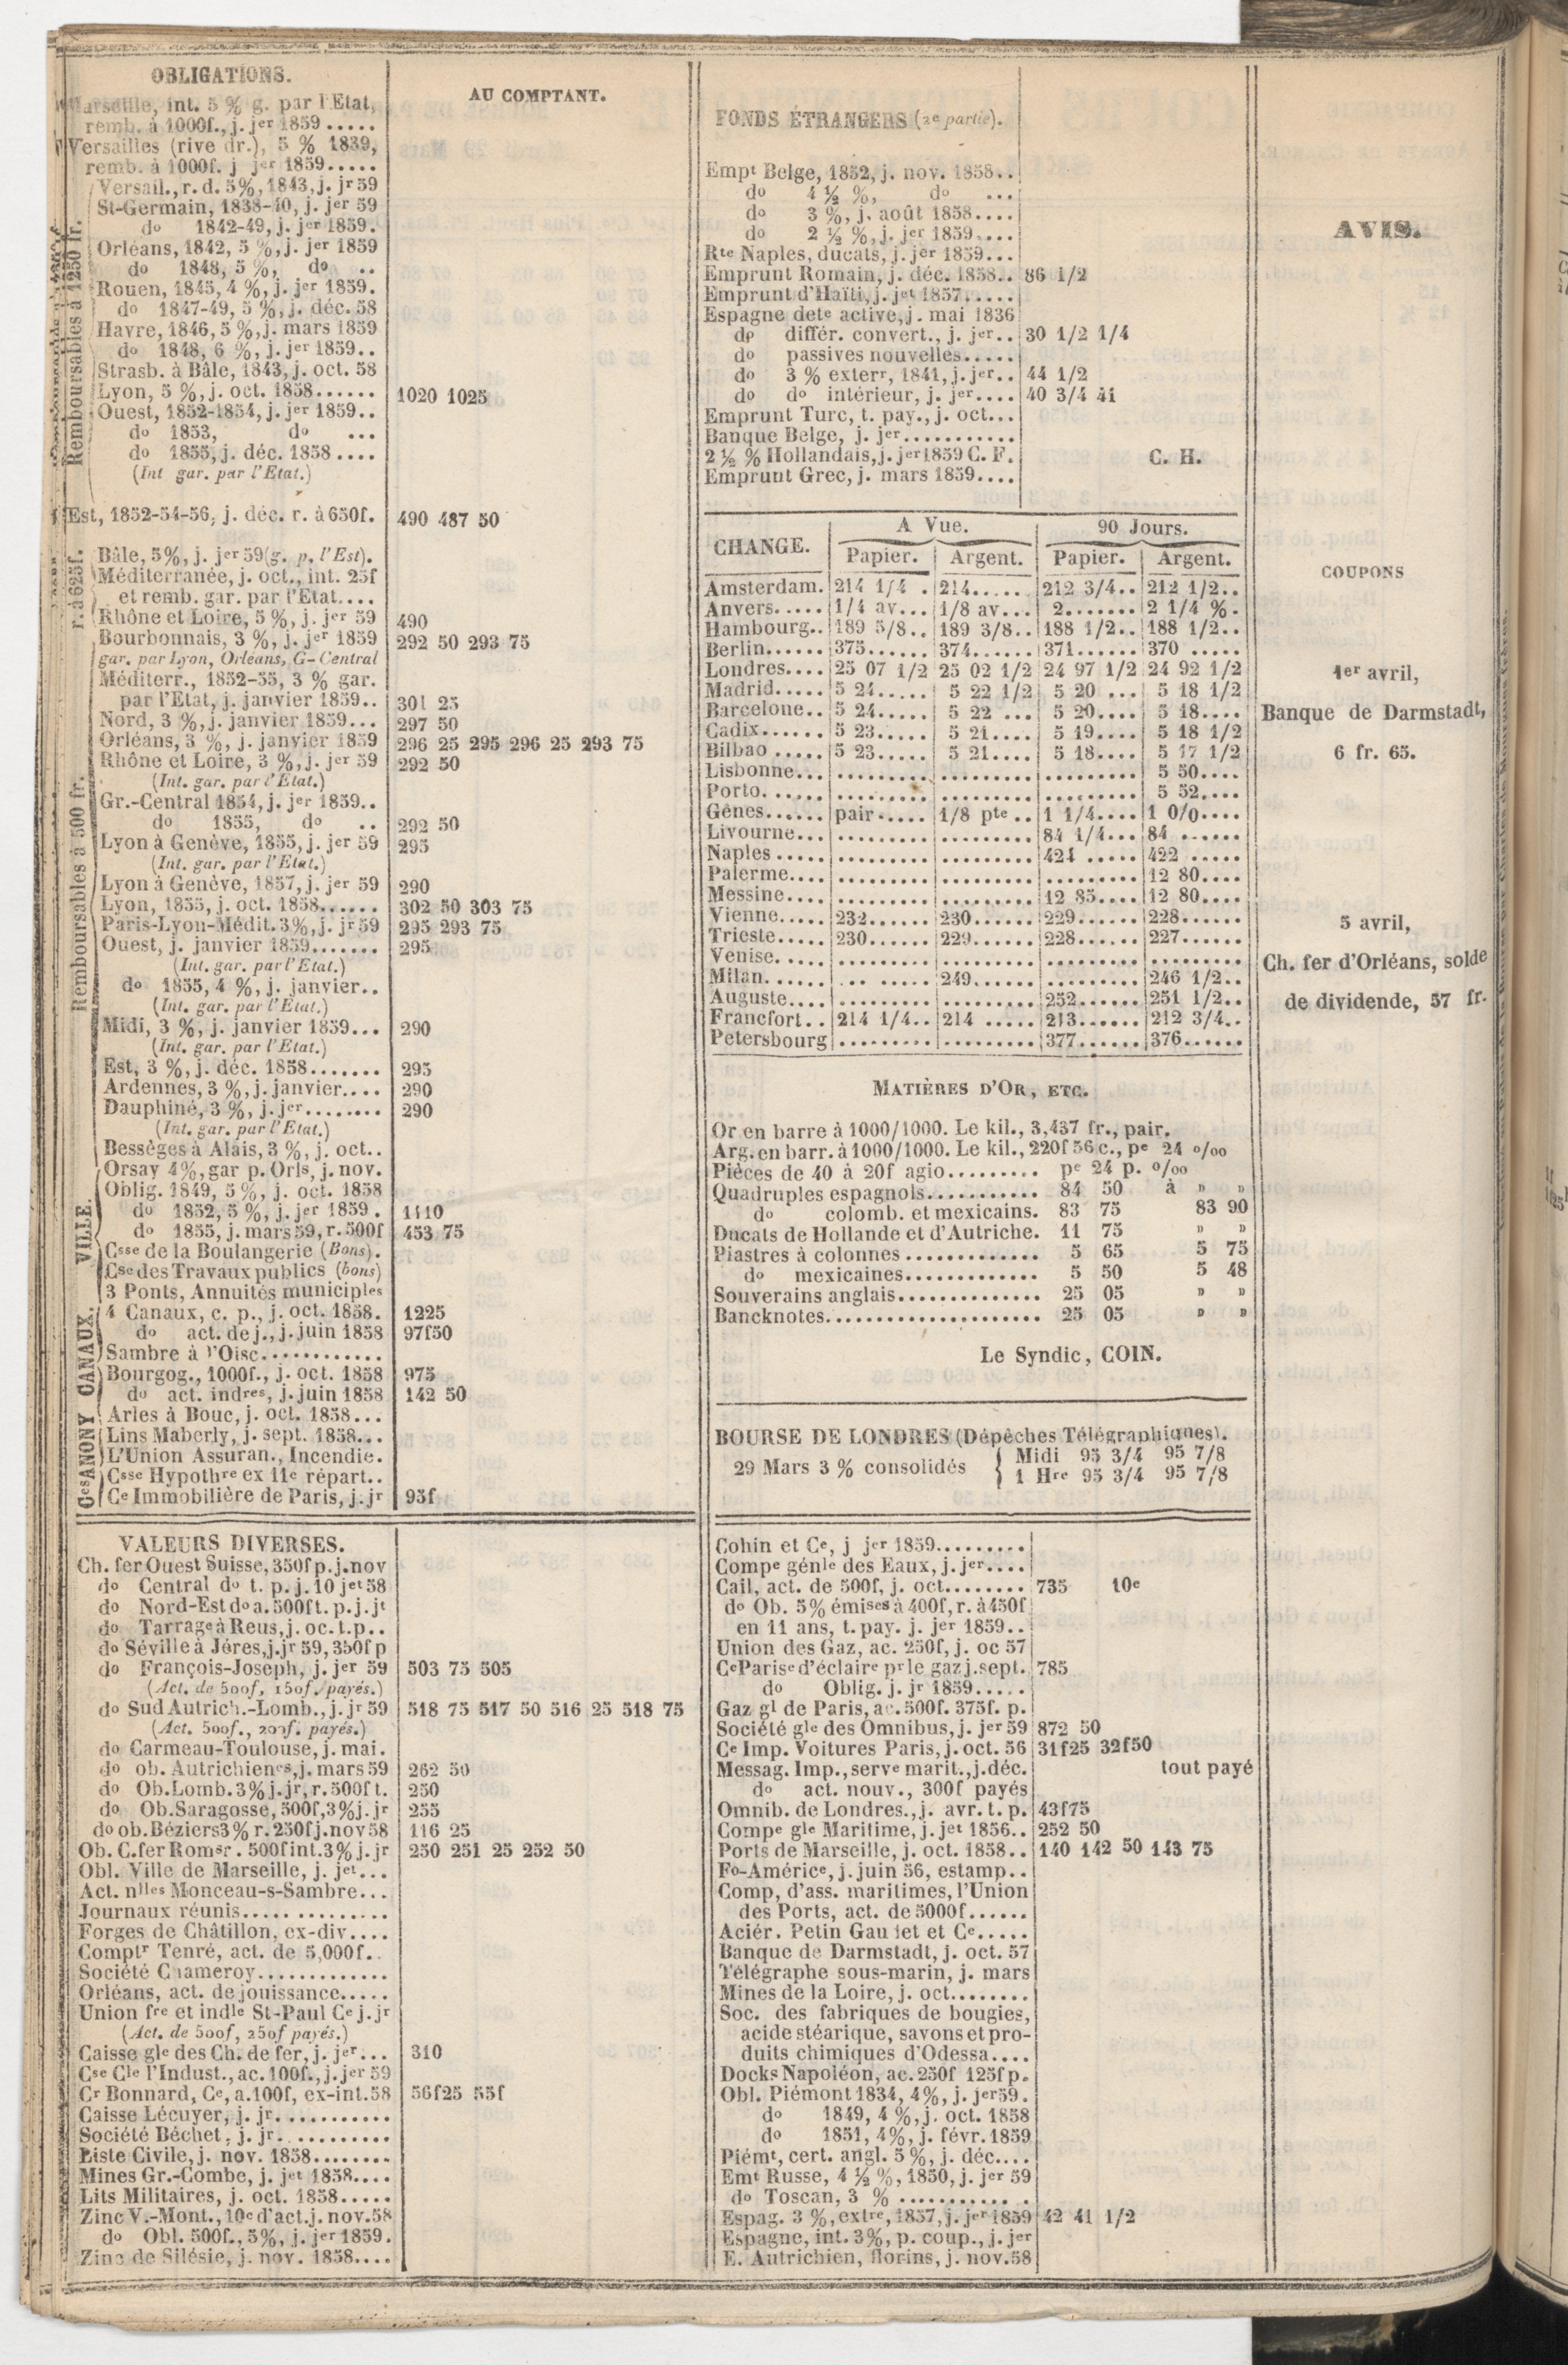 OBLIGATIONS.
AU COMPTANT.
Marseille, int. 5 % g. par l'Etat,
remb. à 1000f., j. jer 1859 .....
Versailles (rive dr.), 5 % 1839,
remb. à 1000f. j jer 1859.....
Remboursables à 1250 fr.
Versail., r. d. 5%, 1843, j. jr 59
St-Germain, 1838-40, j. jer 59
do 1842-49, j. jer 1859.
Orléans, 1842, 5 %, j. jer 1859
do 1848, 5 %, do ..
Rouen, 1845, 4 %, j. jer 1859.
do 1847-49, 5 %, j. déc. 58
Havre, 1846, 5 %, j. mars 1859
do 1848, 6 %, j. jer 1859..
Strasb. à Bâle, 1843, j. oct. 58
Lyon, 5 %, j. oct. 1858...... 1020 1025
Ouest, 1852-1854, j. jer 1859..
do 1853, do ...
do 1855, j. déc. 1858 ....
(Int gar. par l'Etat.)
Est, 1852-54-56, j. déc. r. à 650f. 490 487 50
r. à 625f.
Bâle, 5%, j. jer 59 (g. p. l'Est).
Méditerranée, j. oct., int. 25f
et remb. gar. par l'Etat....
Rhône et Loire, 5 %, j. jer 59 490
Remboursables à 500 fr.
Bourbonnais, 3 %, j. jer 1859 292 50 293 75
gar. par Lyon, Orléans, G-Central
Méditerr., 1852-55, 3 % gar.
par l'Etat, j. janvier 1859.. 301 25
Nord, 3 %, j. janvier 1859... 297 50
Orléans, 3 %, j. janvier 1859 296 25 295 296 25 293 75
Rhône et Loire, 3 %, j. jer 59 292 50
(Int. gar. par l'Etat.)
Gr.-Central 1854, j. jer 1859..
do 1855, do .. 292 50
Lyon à Genève, 1855, j. jer 59 295
(Int. gar. par l'Etat.)
Lyon à Genève, 1857, j. jer 59 290
Lyon, 1855, j. oct. 1858...... 302 50 303 75
Paris-Lyon-Médit. 3%, j. jr 59 295 293 75
Ouest, j. janvier 1859....... 295
(Int. gar. par l'Etat.)
do 1855, 4 %, j. janvier..
(Int. gar. par l'Etat.)
Midi, 3 %, j. janvier 1859... 290
(Int. gar. par l'Etat.)
Est, 3 %, j. déc. 1858....... 295
Ardennes, 3 %, j. janvier.... 290
Dauphiné, 3 %, j. jer........ 290
(Int. gar. par l'Etat.)
Bessèges à Alais, 3 %, j. oct..
Orsay 4%, gar p. Orls, j. nov.
VILLE.
Oblig. 1849, 5 %, j. oct. 1858
do 1852, 5 %, j. jer 1859 . 1110
do 1855, j. mars 59, r. 500f 453 75
Csse de la Boulangerie (Bons).
Cse des Travaux publics (bons)
3 Ponts, Annuités municiples
CANAUX.
4 Canaux, c. p., j. oct. 1858. 1225
do act. de j., j. juin 1858 97f50
Sambre à l'Oise............
Bourgog., 1000f., j. oct. 1858 975
do act. indres, j. juin 1858 142 50
Arles à Bouc, j. oct. 1858...
Ces ANONY
Lins Maberly, j. sept. 1858...
L'Union Assuran., Incendie.
Csse Hypothre ex 11e répart..
Ce Immobilière de Paris, j. jr 95f
VALEURS DIVERSES.
Ch. fer Ouest Suisse, 350f p. j. nov
do Central do t. p. j. 10 jet 58
do Nord-Est do a. 500f t. p. j. jt
do Tarrage à Reus, j. oc. t. p..
do Séville à Jéres, j. jr 59, 350f p
do François-Joseph, j. jer 59 503 75 505
(Act. de 500f, 150f. payés.)
do Sud Autrich.-Lomb., j. jr 59 518 75 517 50 516 25 518 75
(Act. 500f., 200f. payés.)
do Carmeau-Toulouse, j. mai.
do ob. Autrichienes, j. mars 59 262 50
do Ob. Lomb. 3% j. jr, r. 500f t. 250
do Ob. Saragosse, 500f, 3% j. jr 255
do ob. Béziers 3% r. 250f j. nov 58 116 25
Ob. C. fer Romsr. 500f int. 3% j. jr 250 251 25 252 50
Obl. Ville de Marseille, j. jet...
Act. nlles Monceau-s-Sambre...
Journaux réunis..............
Forges de Châtillon, ex-div....
Comptr Tenré, act. de 5,000f..
Société Chameroy.............
Orléans, act. de jouissance.....
Union fre et indle St-Paul Ce j. jr
(Act. de 500f, 250f payés.)
Caisse gle des Ch. de fer, j. jer... 310
Cse Cle l'Indust., ac. 100f., j. jer 59
Cr Bonnard, Ce, a. 100f, ex-int. 58 56f25 55f
Caisse Lécuyer, j. jr...........
Société Béchet, j. jr..........
Liste Civile, j. nov. 1858........
Mines Gr.-Combe, j. jet 1858....
Lits Militaires, j. oct. 1858.....
Zinc V.-Mont., 10e d'act. j. nov. 58
do Obl. 500f., 5%, j. jer 1859.
Zinc de Silésie, j. nov. 1858....
FONDS ÉTRANGERS (2e partie).
Empt Belge, 1852, j. nov. 1858..
do 4 ½ %, do ...
do 3 %, j. août 1858....
do 2 ½ %, j. jer 1859....
Rte Naples, ducats, j. jer 1859...
Emprunt Romain, j. déc. 1858.. 86 1/2
Emprunt d'Haïti, j. jet 1857.....
Espagne dete active, j. mai 1836
do différ. convert., j. jer.. 30 1/2 1/4
do passives nouvelles.....
do 3 % exterr, 1841, j. jer.. 44 1/2
do do intérieur, j. jer.... 40 3/4 41
Emprunt Turc, t. pay., j. oct...
Banque Belge, j. jer...........
2 ½ % Hollandais, j. jer 1859 C. F. C. H.
Emprunt Grec, j. mars 1859....
CHANGE. A Vue. 90 Jours.
Papier. Argent. Papier. Argent.
Amsterdam. 214 1/4 . 214..... 212 3/4.. 212 1/2..
Anvers..... 1/4 av... 1/8 av... 2....... 2 1/4 %.
Hambourg.. 189 5/8.. 189 3/8.. 188 1/2.. 188 1/2..
Berlin...... 375...... 374...... 371...... 370 .....
Londres.... 25 07 1/2 25 02 1/2 24 97 1/2 24 92 1/2
Madrid..... 5 24..... 5 22 1/2 5 20 ... 5 18 1/2
Barcelone.. 5 24..... 5 22 ... 5 20.... 5 18....
Cadix...... 5 23..... 5 21.... 5 19.... 5 18 1/2
Bilbao ..... 5 23..... 5 21.... 5 18.... 5 17 1/2
Lisbonne... ......... ......... ......... 5 50....
Porto....... ......... ......... ......... 5 52....
Gênes...... pair...... 1/8 pte .. 1 1/4.... 1 0/0....
Livourne... ......... ......... 84 1/4... 84 ......
Naples ..... ......... ......... 424 ..... 422 .....
Palerme.... ......... ......... ......... 12 80....
Messine.... ......... ......... 12 85.... 12 80....
Vienne..... 232...... 230...... 229...... 228......
Trieste..... 230...... 229...... 228...... 227......
Venise..... ......... ......... ......... .........
Milan....... .. ..... 249...... ......... 246 1/2..
Auguste.... ......... ......... 252...... 251 1/2..
Francfort.. 214 1/4.. 214 ..... 213...... 212 3/4..
Petersbourg ......... ......... 377...... 376......
MATIÈRES D'OR, ETC.
Or en barre à 1000/1000. Le kil., 3,437 fr., pair.
Arg. en barr. à 1000/1000. Le kil., 220f 56 c., pe 24 o/oo
Pièces de 40 à 20f agio......... pe 24 p. o/oo
Quadruples espagnols........... 84 50 à » »
do colomb. et mexicains. 83 75 83 90
Ducats de Hollande et d'Autriche. 11 75 » »
Piastres à colonnes ............. 5 65 5 75
do mexicaines............. 5 50 5 48
Souverains anglais.............. 25 05 » »
Bancknotes..................... 25 05 » »
Le Syndic, COIN.
BOURSE DE LONDRES (Dépêches Télégraphiques).
29 Mars 3 % consolidés { Midi 95 3/4 95 7/8
1 Hre 95 3/4 95 7/8
Cohin et Ce, j jer 1859.........
Compe génle des Eaux, j. jer....
Cail, act. de 500f, j. oct........ 735 10e
do Ob. 5% émises à 400f, r. à 450f
en 11 ans, t. pay. j. jer 1859..
Union des Gaz, ac. 250f, j. oc 57
Ce Parise d'éclaire pr le gaz j. sept. 785
do Oblig. j. jr 1859.....
Gaz gl de Paris, ac. 500f. 375f. p.
Société gle des Omnibus, j. jer 59 872 50
Ce Imp. Voitures Paris, j. oct. 56 31f25 32f50
Messag. Imp., serve marit., j. déc. tout payé
do act. nouv., 300f payés
Omnib. de Londres., j. avr. t. p. 43f75
Compe gle Maritime, j. jet 1856.. 252 50
Ports de Marseille, j. oct. 1858.. 140 142 50 143 75
Fo-Américe, j. juin 56, estamp..
Comp, d'ass. maritimes, l'Union
des Ports, act. de 5000f......
Aciér. Petin Gaudet et Ce.....
Banque de Darmstadt, j. oct. 57
Télégraphe sous-marin, j. mars
Mines de la Loire, j. oct........
Soc. des fabriques de bougies,
acide stéarique, savons et pro-
duits chimiques d'Odessa....
Docks Napoléon, ac. 250f 125f p.
Obl. Piémont 1834, 4%, j. jer 59.
do 1849, 4 %, j. oct. 1858
do 1851, 4%, j. févr. 1859
Piémt, cert. angl. 5 %, j. déc....
Emt Russe, 4 ½ %, 1850, j. jer 59
do Toscan, 3 % ............
Espag. 3 %, extre, 1857, j. jer 1859 42 41 1/2
Espagne, int. 3%, p. coup., j. jer
E. Autrichien, florins, j. nov. 58
AVIS.
COUPONS
1er avril,
Banque de Darmstadt,
6 fr. 65.
5 avril,
Ch. fer d'Orléans, solde
de dividende, 57 fr.